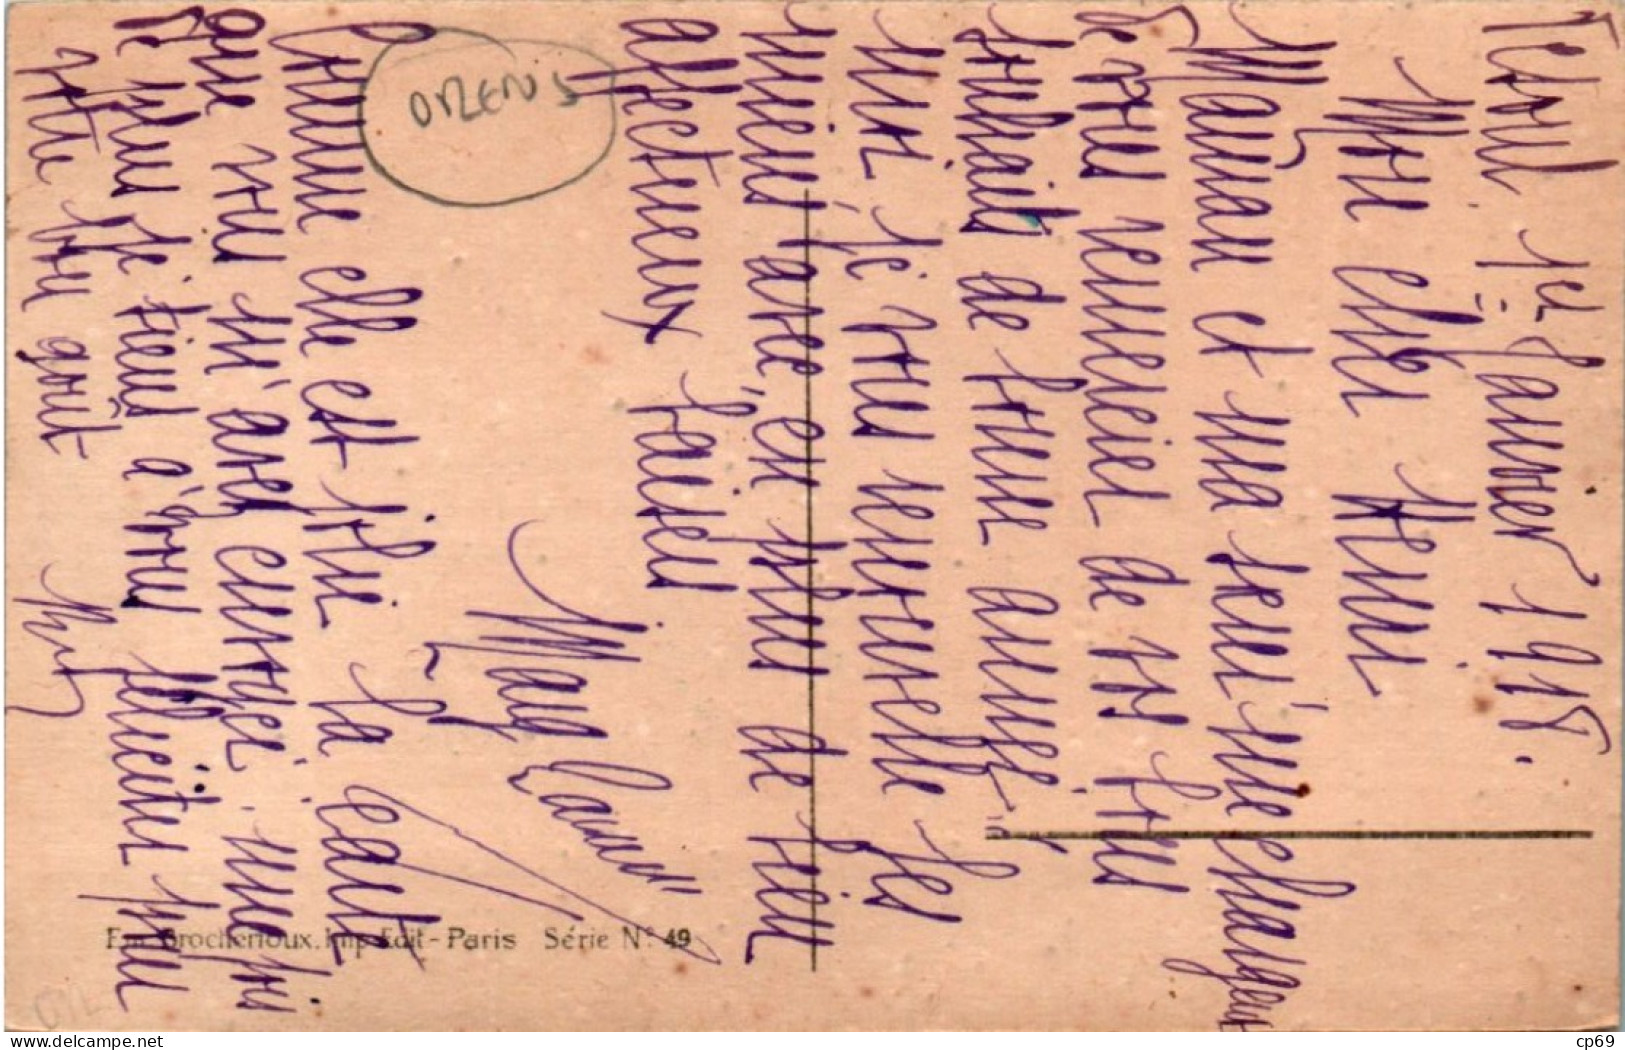 Vesoul. 1er Janvier 1918.
Mon cher Henri
Maman et ma soeur me chargent
de vous remercier de vos bons
souhaits de bonne année.
Moi, je vous renouvelle les
miens avec, en plus de bien
affectueux baisers
Mag
Comme elle est jolie la carte
que vous m'avez envoyée! une fois
de plus je tiens à vous féliciter pour
votre bon goût
ORZENS
Em. Brocherioux. Imp. Edit - Paris Série N° 49
delcampe.net
cp69